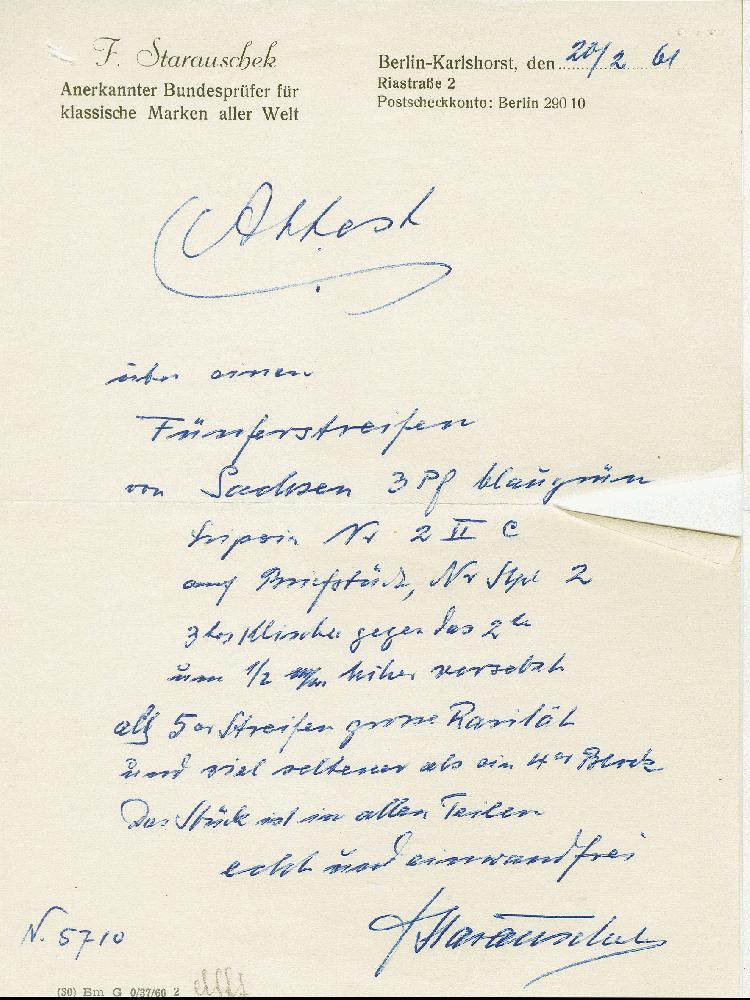 F. Starauschek
Anerkannter Bundesprüfer für
klassische Marken aller Welt
Berlin-Karlshorst, den 20/2 61
Riastraße 2
Postscheckkonto: Berlin 290 10
Attest
über einen
Fünferstreifen
von Sachsen 3 Pf blaugrün
Nr 2 II c
auf Briefstück, Nr Stpl 2
3tes Klischee gegen das 2te
um 1/2 mm höher versetzt
als 5er Streifen grosse Rarität
und viel seltener als ein 4er Block
Das Stück ist in allen Teilen
echt und einwandfrei
N. 5710
F Starauschek
(30) Bm G 0/37/60 2